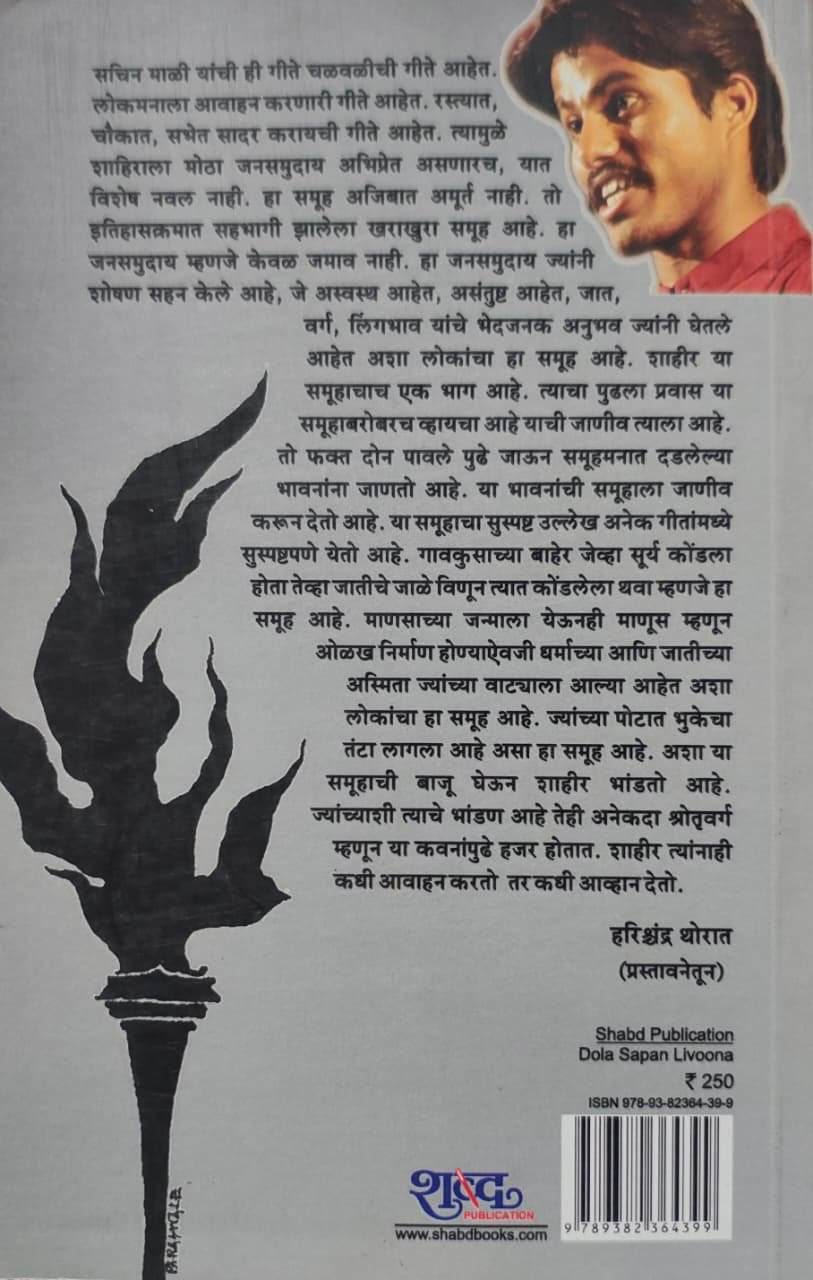 सचिन माळी यांची ही गीते चळवळीची गीते आहेत.
लोकमनाला आवाहन करणारी गीते आहेत. रस्त्यात,
चौकात, सभेत सादर करायची गीते आहेत. त्यामुळे
शाहिराला मोठा जनसमुदाय अभिप्रेत असणारच, यात
विशेष नवल नाही. हा समूह अजिबात अमूर्त नाही. तो
इतिहासक्रमात सहभागी झालेला खराखुरा समूह आहे. हा
जनसमुदाय म्हणजे केवळ जमाव नाही. हा जनसमुदाय ज्यांनी
शोषण सहन केले आहे, जे अस्वस्थ आहेत, असंतुष्ट आहेत, जात,
वर्ग, लिंगभाव यांचे भेदजनक अनुभव ज्यांनी घेतले
आहेत अशा लोकांचा हा समूह आहे. शाहीर या
समूहाचाच एक भाग आहे. त्याचा पुढला प्रवास या
समूहाबरोबरच व्हायचा आहे याची जाणीव त्याला आहे.
तो फक्त दोन पावले पुढे जाऊन समूहमनात दडलेल्या
भावनांना जाणतो आहे. या भावनांची समूहाला जाणीव
करून देतो आहे. या समूहाचा सुस्पष्ट उल्लेख अनेक गीतांमध्ये
सुस्पष्टपणे येतो आहे. गावकुसाच्या बाहेर जेव्हा सूर्य कोंडला
होता तेव्हा जातीचे जाळे विणून त्यात कोंडलेला थवा म्हणजे हा
समूह आहे. माणसाच्या जन्माला येऊनही माणूस म्हणून
ओळख निर्माण होण्याऐवजी धर्माच्या आणि जातीच्या
अस्मिता ज्यांच्या वाट्याला आल्या आहेत अशा
लोकांचा हा समूह आहे. ज्यांच्या पोटात भुकेचा
तंटा लागला आहे असा हा समूह आहे. अशा या
समूहाची बाजू घेऊन शाहीर भांडतो आहे.
ज्यांच्याशी त्याचे भांडण आहे तेही अनेकदा श्रोतृवर्ग
म्हणून या कवनांपुढे हजर होतात. शाहीर त्यांनाही
कधी आवाहन करतो तर कधी आव्हान देतो.
हरिश्चंद्र थोरात
(प्रस्तावनेतून)
Shabd Publication
Dola Sapan Livoona
₹ 250
ISBN 978-93-82364-39-9
9 789382 364399
शब्द
PUBLICATION
www.shabdbooks.com